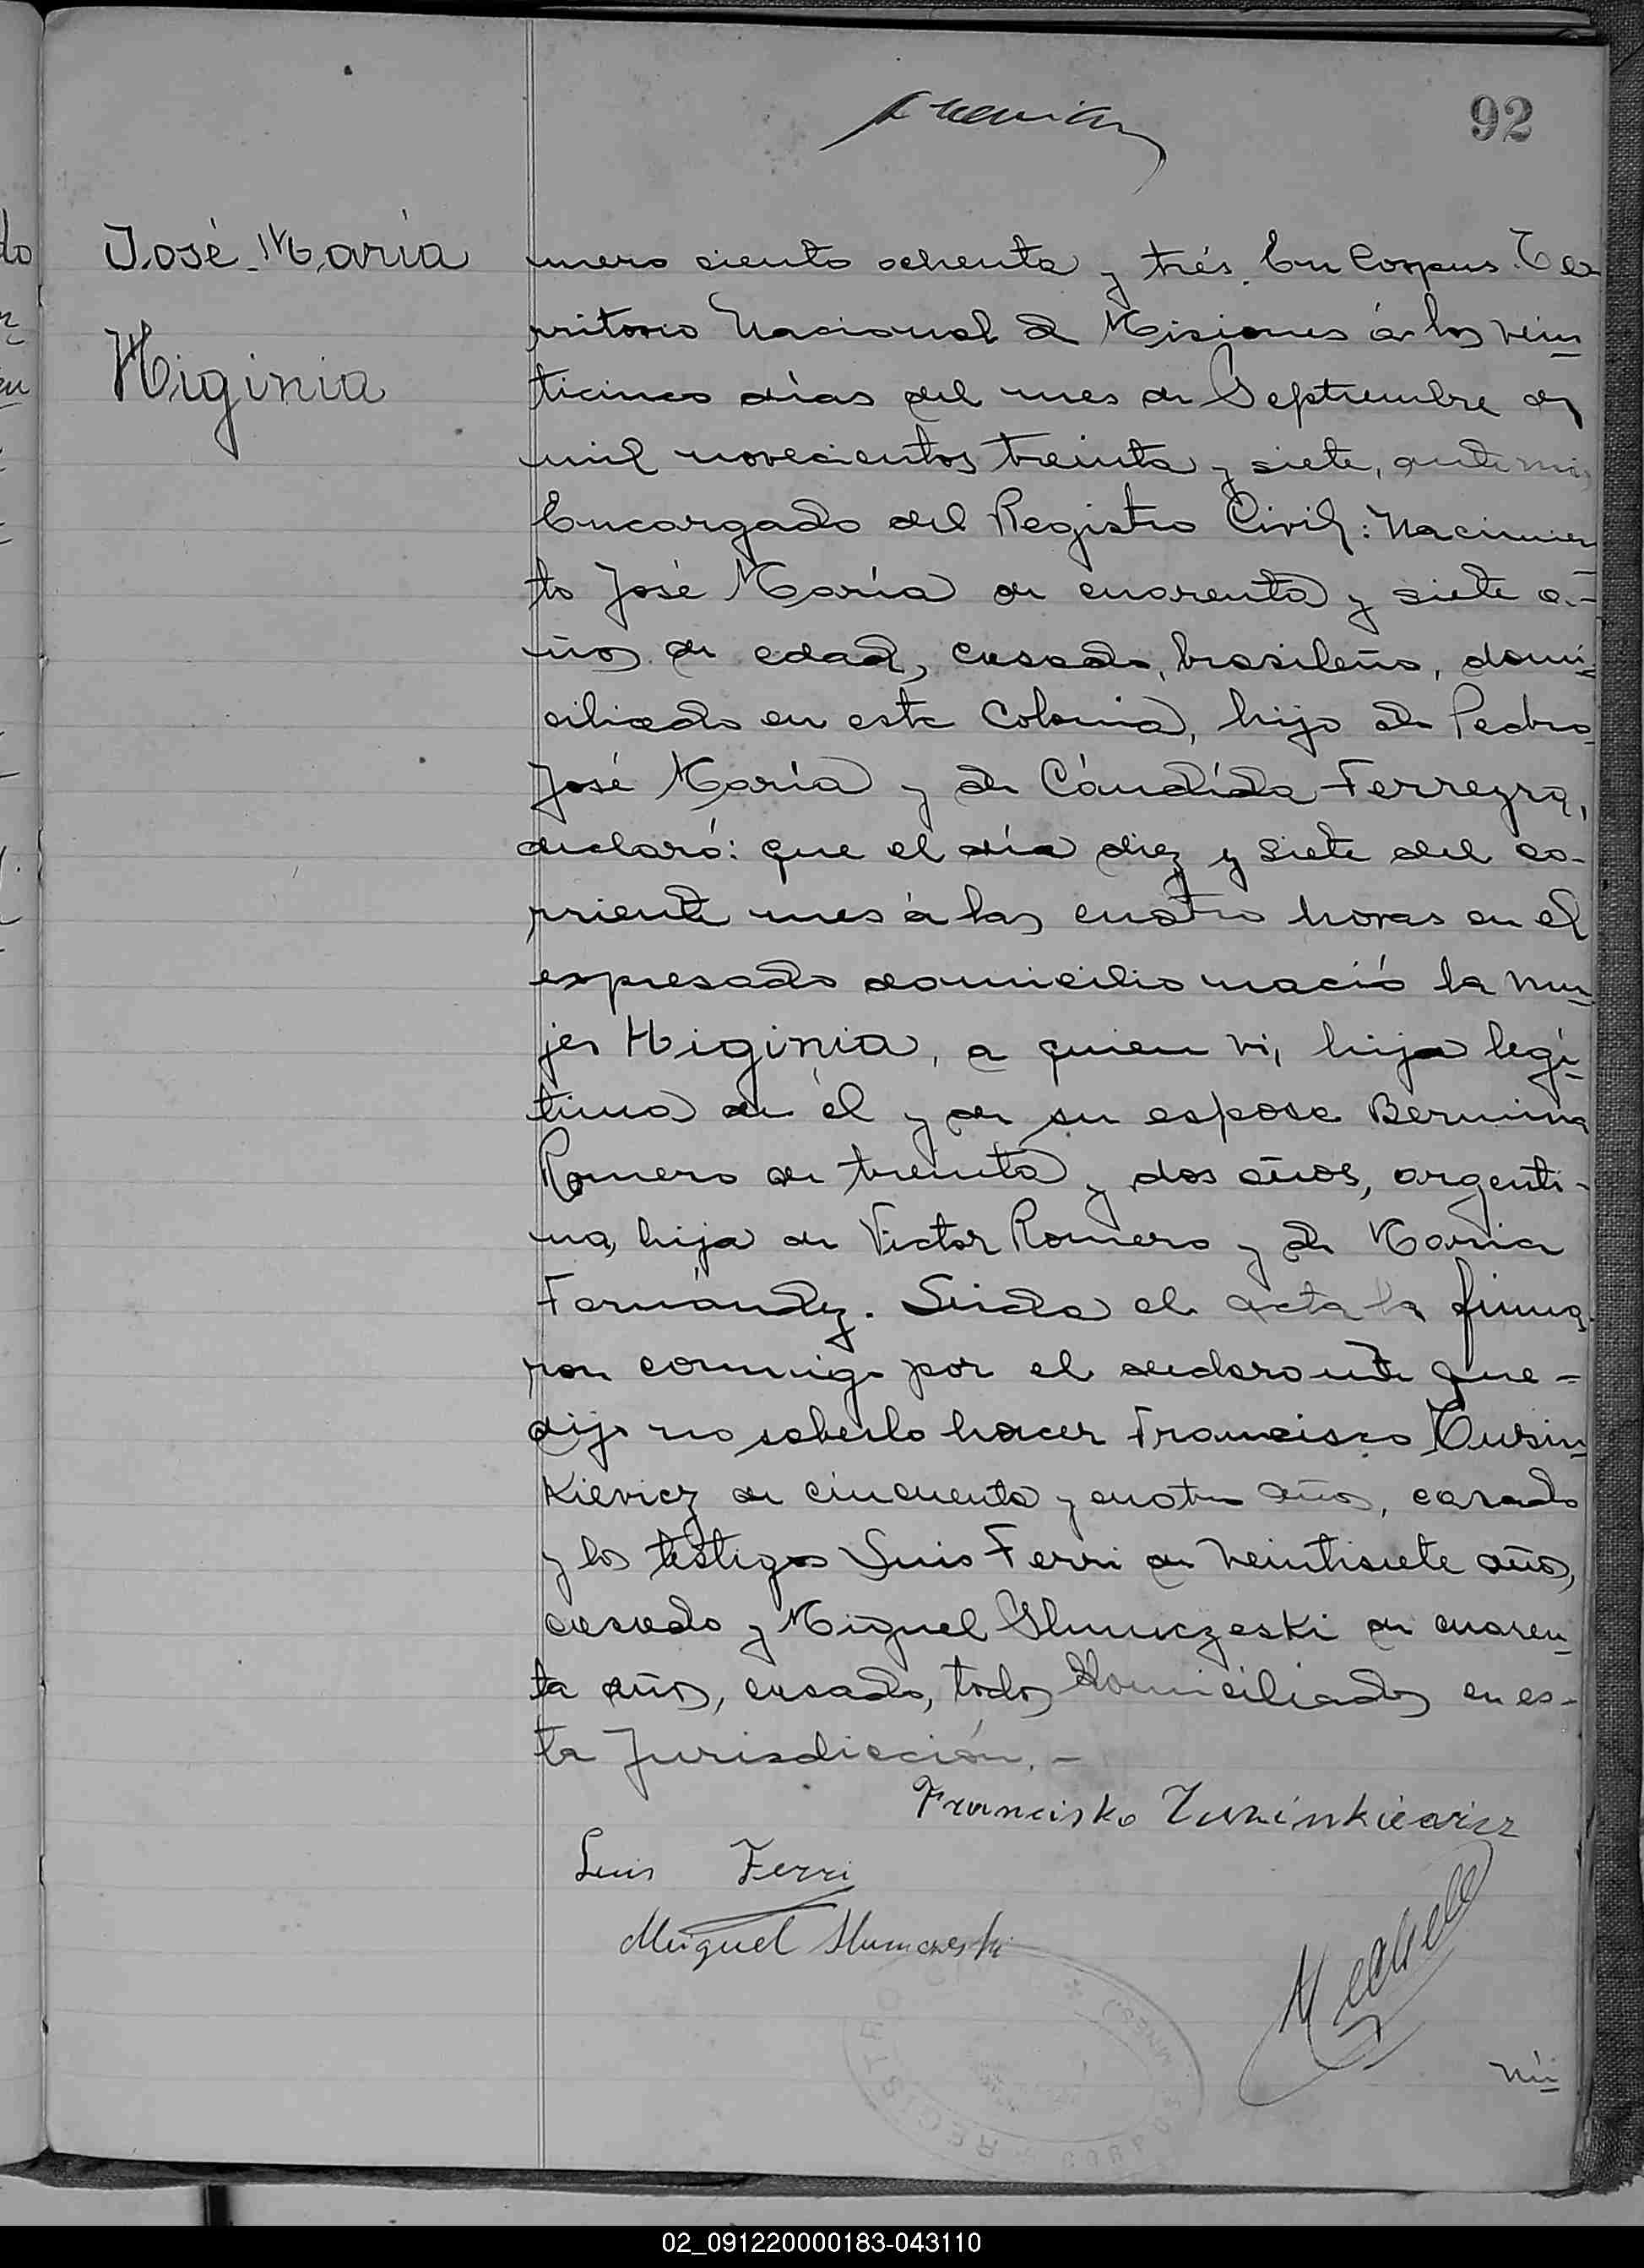 92
José María
Higinia
mero ciento ochenta y trés. En Corpus Te
rritorio Nacional de Misiones á los vein
ticinco días del mes de Septiembre de
mil novecientos treinta y siete, ante mi
Encargado del Registro Civil: Nacimien
to José María de cuarenta y siete a-
ños de edad, casado, brasileño, domi
ciliado en esta Colonia, hijo de Pedro
José María y de Cándída Ferreyra,
declaró: que el día diez y siete del co-
rriente mes á las cuatro horas en el
expresado domicilio nació la mu
jer Higinia, a quien vi, hija legí
tima de él y de su esposa Bernina
Romero de treinta y dos años, argenti-
na, hija de Victor Romero y de Maria
Fernández. Leida el acta la firma
ron conmigo por el declarante que-
dijo no saberlo hacer Francisco Tusin
Kievicz de cincuenta y cuatro años, casado
y los testigos Luis Ferri de veintisiete años,
casado y Miguel Slumczeski de cuaren
ta años, casado, todos domiciliados en es-
ta Jurisdicción. -
Francisko Tusinkiewicz
Luis Ferri
Miguel Slumczeski
REGISTRO
nú
02_091220000183-043110